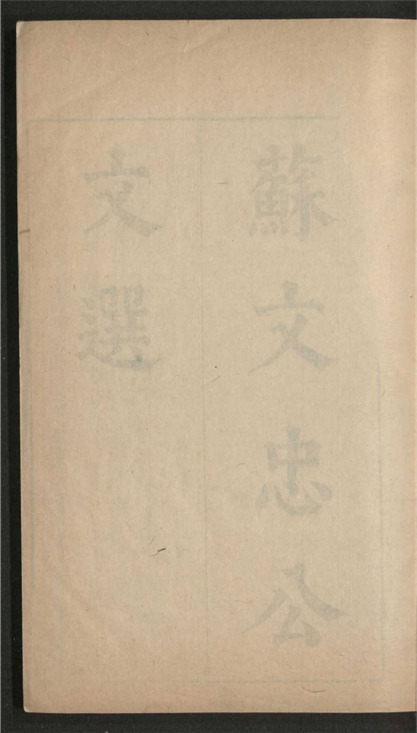 蘇文忠公
文選